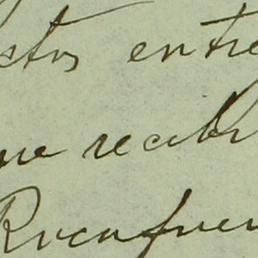 ctos entre
que recibi
Rocafuer